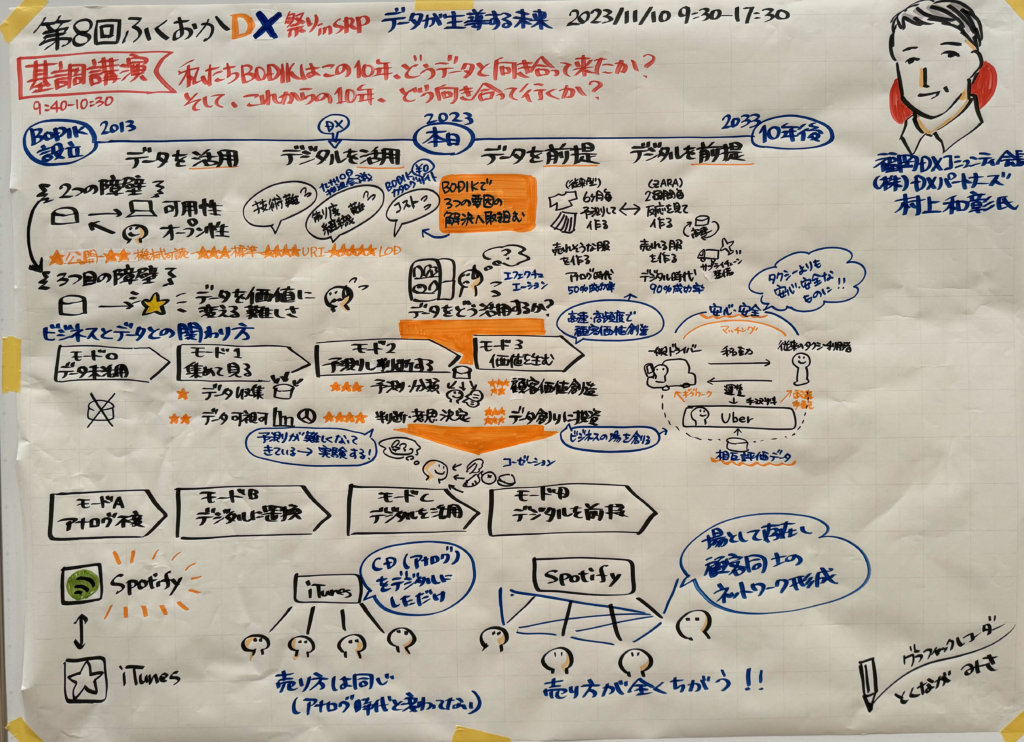 第8回ふくおかDX祭りinSRP データが主導する未来 2023/11/10 9:30-17:30
基調講演
9:40-10:30
私たちBODIKはこの10年、どうデータと向き合って来たか?
そして、これからの10年、どう向き合って行くか?
BODIK設立 2013
DX
2023
本日
2033
10年後
データを活用
デジタルを活用
データを前提
デジタルを前提
福岡DXコミュニティ会長
(株)DXパートナーズ
村上和彰氏
2つの障壁
可用性
オープン性
技術難?
制度
組織 難?
コスト?
BODIKで
3つの要因の
解決へ取組む
(従来型)
6ヶ月前
予測して
作る
(ZARA)
2週間前
原宿を見て
作る
在庫
サプライチェーン
売れそうな服
を作る
売れる服
を作る
アナログ時代
50%成功率
デジタル時代!
90%成功率
★公開 ★★機械判読 ★★★標準 ★★★★URI ★★★★★LOD
3つ目の障壁
データを価値に
変える難しさ
エフェクチュ
エーション
データをどう活用するか?
高速・高頻度で
顧客価値創造
タクシーよりも
安心・安全な
ものに!!
安心・安全
マッチング
一般ドライバー
移動
従来のタクシー利用者
Uber
相互評価データ
ビジネスとデータとの関わり方
モード0
データ未活用
モード1
集めて見る
モード2
予測し判断する
モード3
価値を生む
★ データ収集
★★ データ可視す
★★★ 予測/分類
★★★★ 判断・意思決定
顧客価値創造
データ創りに投資
予測が難しくなって
きている→実験する!
コーゼーション
ビジネスの場を創る
モードA
アナログ本接
モードB
デジタルに置換
モードC
デジタルを活用
モードD
デジタルを前提
Spotify
iTunes
iTunes
CD(アナログ)
をデジタルに
しただけ
Spotify
場として存在し
顧客同士の
ネットワーク形成
売り方は同じ
(アナログ時代と変わってない)
売り方が全くちがう!!
グラフィックレコーダー
とくなが みき